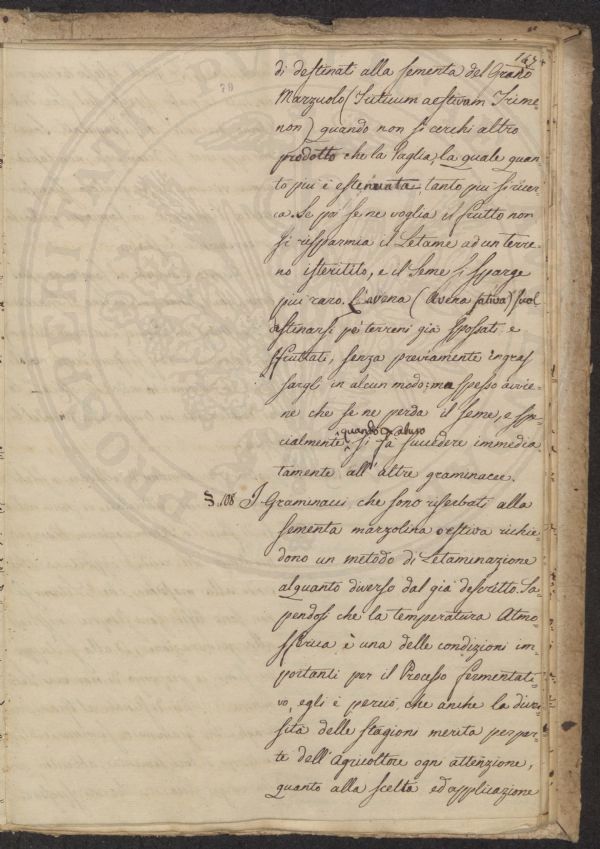 di destinati alla sementa del Grano
Marzuolo (Triticum aestivam Trime
non) quando non si cerchi altro
prodotto che la Paglia, la quale quan
to più è estenuata, tanto più si ricer
ca. Se poi se ne voglia il frutto non
si risparmia il Letame ad un terre
no isterilito, e il Seme si sparge
più raro. L'avena (Avena sativa) suol
destinarsi pei terreni già spossati e
sfruttati, senza previamente ingras
sargli in alcun modo; ma spesso avvie
ne che se ne perda il seme, e spe
quando per abuso
cialmente si fà succedere immedia
tamente all'altre graminacee.
§. 108 I Graminacei che sono riserbati alla
sementa marzolina o estiva richie
dono un metodo di Letaminazione
alquanto diverso dal già descritto. Sa
pendosi che la temperatura Atmo
sferica è una delle condizioni im
portanti per il Processo fermentati
vo, egli è perciò che anche la diver
sità delle stagioni merita per par
te dell'Agricoltore ogni attenzione,
quanto alla scelta ed applicazione